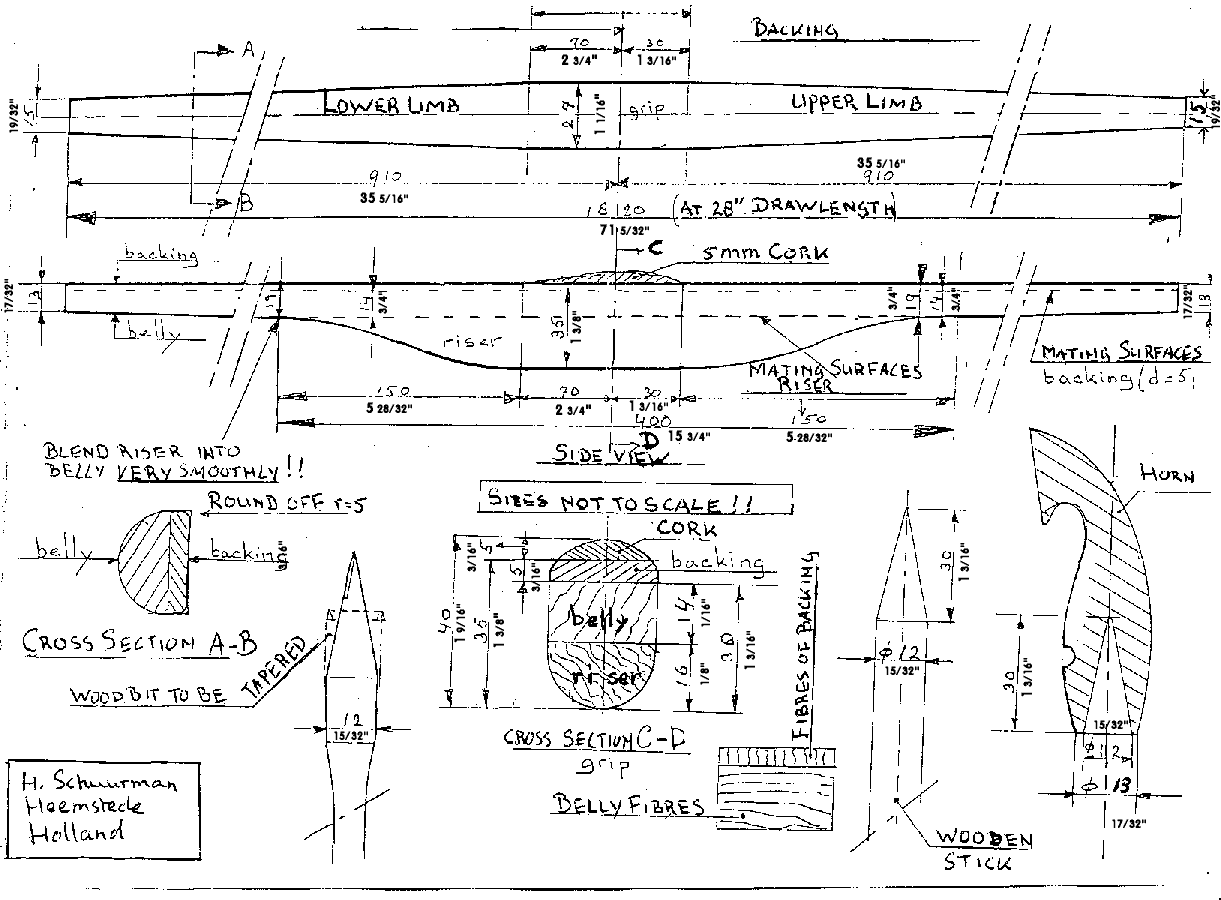 BACKING
70
30
2 3/4"
1 3/16"
A
LOWER LIMB
grip
UPPER LIMB
19/32"
15
27
1 1/16"
15
19/32"
910
35 5/16"
35 5/16"
910
B
18120 (AT 28" DRAWLENGTH)
71 5/32"
C
backing
5mm CORK
17/32"
13
19
19
3/4"
35
1 3/8"
3/4"
19
14
3/4"
17/32"
13
belly
riser
MATING SURFACES
RISER
MATING SURFACES
backing (d=5,
150
5 28/32"
70
2 3/4"
30
1 3/16"
400
15 3/4"
150
5 28/32"
D
SIDE VIEW
BLEND RISER INTO
BELLY VERY SMOOTHLY!!
ROUND OFF r=5
SIZES NOT TO SCALE!!
HORN
belly
backing
3/16"
CORK
backing
5
3/16"
5
3/16"
40
1 9/16"
35
1 3/8"
belly
riser
14
1/16"
16
1/8"
30
1 3/16"
FIBRES OF BACKING
30
1 3/16"
CROSS SECTION A-B
WOODBIT TO BE TAPERED
12
15/32"
CROSS SECTION C-D
grip
BELLY FIBRES
ϕ 12
15/32"
30
1 3/16"
15/32"
ϕ 12
ϕ 13
17/32"
WOODEN
STICK
H. Schuurman
Heemstede
Holland